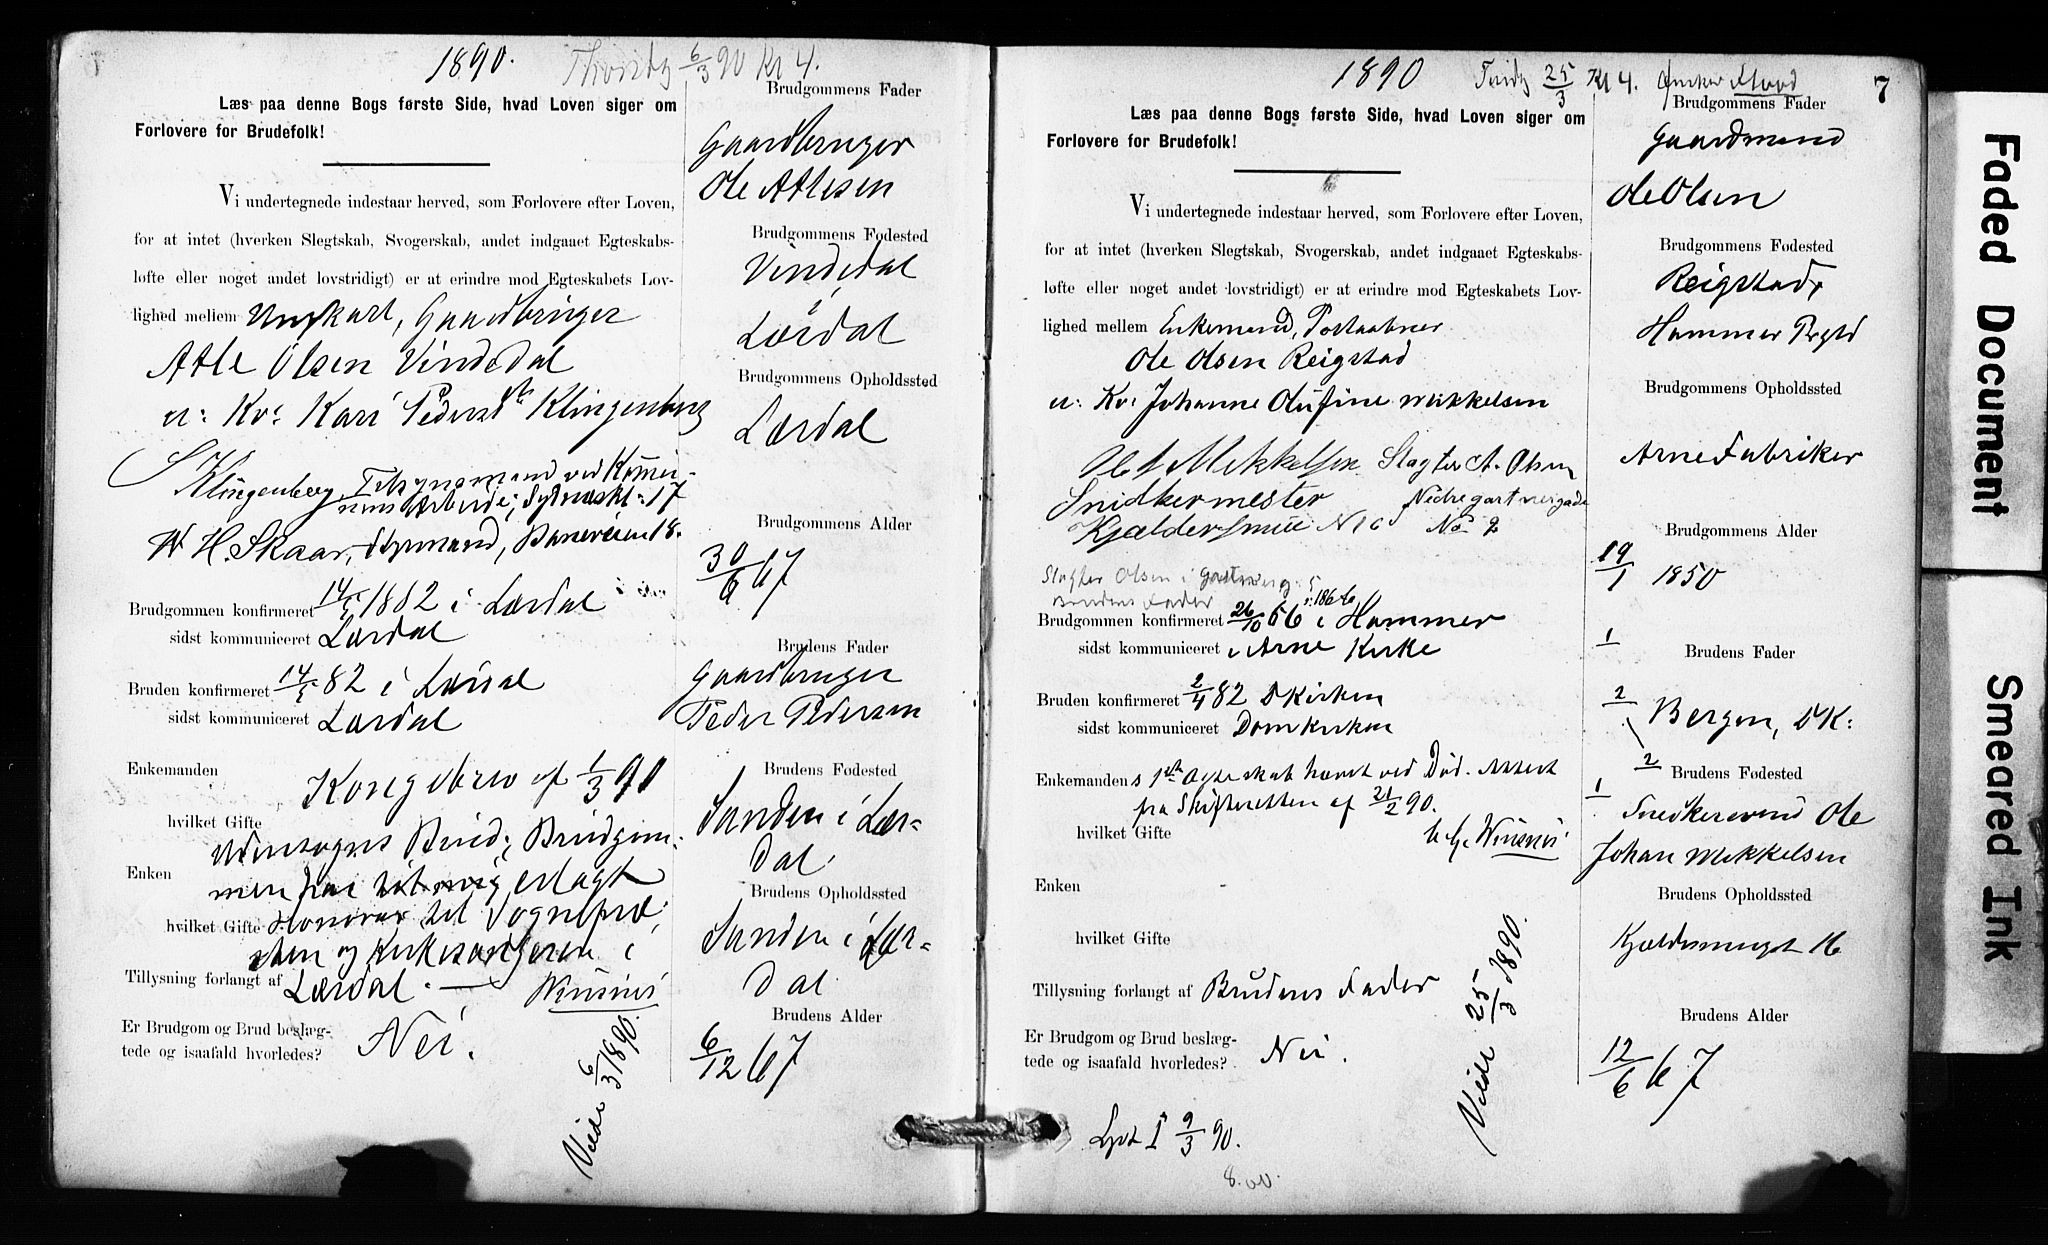 1890. Thorsdg 6/3 90 Kl 4.
Læs paa denne Bogs første Side, hvad Loven siger om
Forlovere for Brudefolk!
Vi undertegnede indestaar herved, som Forlovere efter Loven,
for at intet (hverken Slegtskab, Svogerskab, andet indgaaet Egteskabs-
løfte eller noget andet lovstridigt) er at erindre mod Egteskabets Lov-
lighed mellem Ungkarl, Gaardbruger
Atle Olsen Vindedal
u: Kv: Kari Pedersdtr Klingenberg
Klingenberg, Tilsynsmand ved
Arbeide, 17
W H. Skaar, Styrmand, 18.
Brudgommen konfirmeret 14/5 1882 i Lærdal
sidst kommuniceret Lærdal
Bruden konfirmeret 14/5 82 i Lærdal
sidst kommuniceret Lærdal
Enkemanden Kongebrev af 1/3 90
hvilket Gifte
Udensogns Brud; Brudgom-
Enken men har erlagt
hvilket Gifte Honorar til Sognepræ-
sten og Kirkesangeren i
Tillysning forlangt af Lærdal. — Wensnes
Er Brudgom og Brud beslæg-
tede og isaafald hvorledes? Nei.
Viede 6/3 1890.
Brudgommens Fader
Gaardbruger
Ole Atlesen
Brudgommens Fødested
Vindedal
i
Lærdal
Brudgommens Opholdssted
Lærdal
Brudgommens Alder
30/6 67
Brudens Fader
Gaardbruger
Peder Pedersen
Brudens Fødested
Sanden i Lær-
dal.
Brudens Opholdssted
Sanden i Lær-
dal
Brudens Alder
6/12 67
1890 Tirsdg 25/3 Kl 4. 7
Læs paa denne Bogs første Side, hvad Loven siger om
Forlovere for Brudefolk!
Vi undertegnede indestaar herved, som Forlovere efter Loven,
for at intet (hverken Slegtskab, Svogerskab, andet indgaaet Egteskabs-
løfte eller noget andet lovstridigt) er at erindre mod Egteskabets Lov-
lighed mellem Enkemand, Postaabner
Ole Olsen Reigstad
u: Kv: Johanne Olufine Mikkelsen
Mikkelsen Slagter A. Olsen
Snidkermester
No 2
Slagter Olsen i
Brudens Fader
Brudgommen konfirmeret 26/10 66 i Hammer
sidst kommuniceret i Arne Kirke
Bruden konfirmeret 2/4 82 DKirken
sidst kommuniceret Domkirken
Enkemandens 1ste Ægteskab hævet ved Død. Attest
fra Skifteretten af 21/2 90.
hvilket Gifte Wensnes
Enken
hvilket Gifte
Tillysning forlangt af Brudens Fader
Er Brudgom og Brud beslæg-
tede og isaafald hvorledes? Nei.
Viede 25/3 1890.
Lyst I 9/3 90.
Brudgommens Fader
Gaardmand
Ole Olsen
Brudgommens Fødested
Reigstad,
Hammer Prgld
Brudgommens Opholdssted
Arne Fabriker
Brudgommens Alder
19/1 1850
1 Brudens Fader
2 Bergen, DK:
2 Brudens Fødested
1 Snedkersvend Ole
Johan Mikkelsen
Brudens Opholdssted
16
Brudens Alder
12/6 67
Faded Document
Smeared Ink